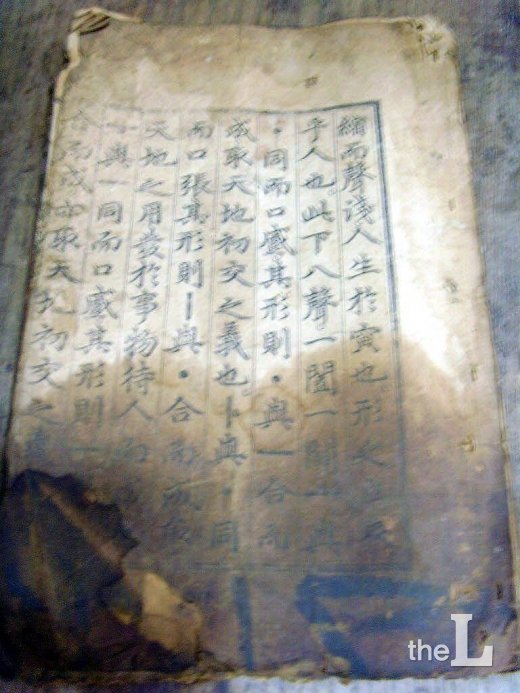 縮而聲淺人生於寅也形之立
乎人也此下八聲一闔一闢ㅗ與
ㆍ同而口蹙其形則ㆍ與ㅡ合而
成取天地初交之義也ㅏ與ㆍ同
而口張其形則ㅣ與ㆍ合而成取
天地之用發於事物待人而
ㅜ與ㅡ同而口蹙其形則ㅡ
合而成亦取天地初交之
theL